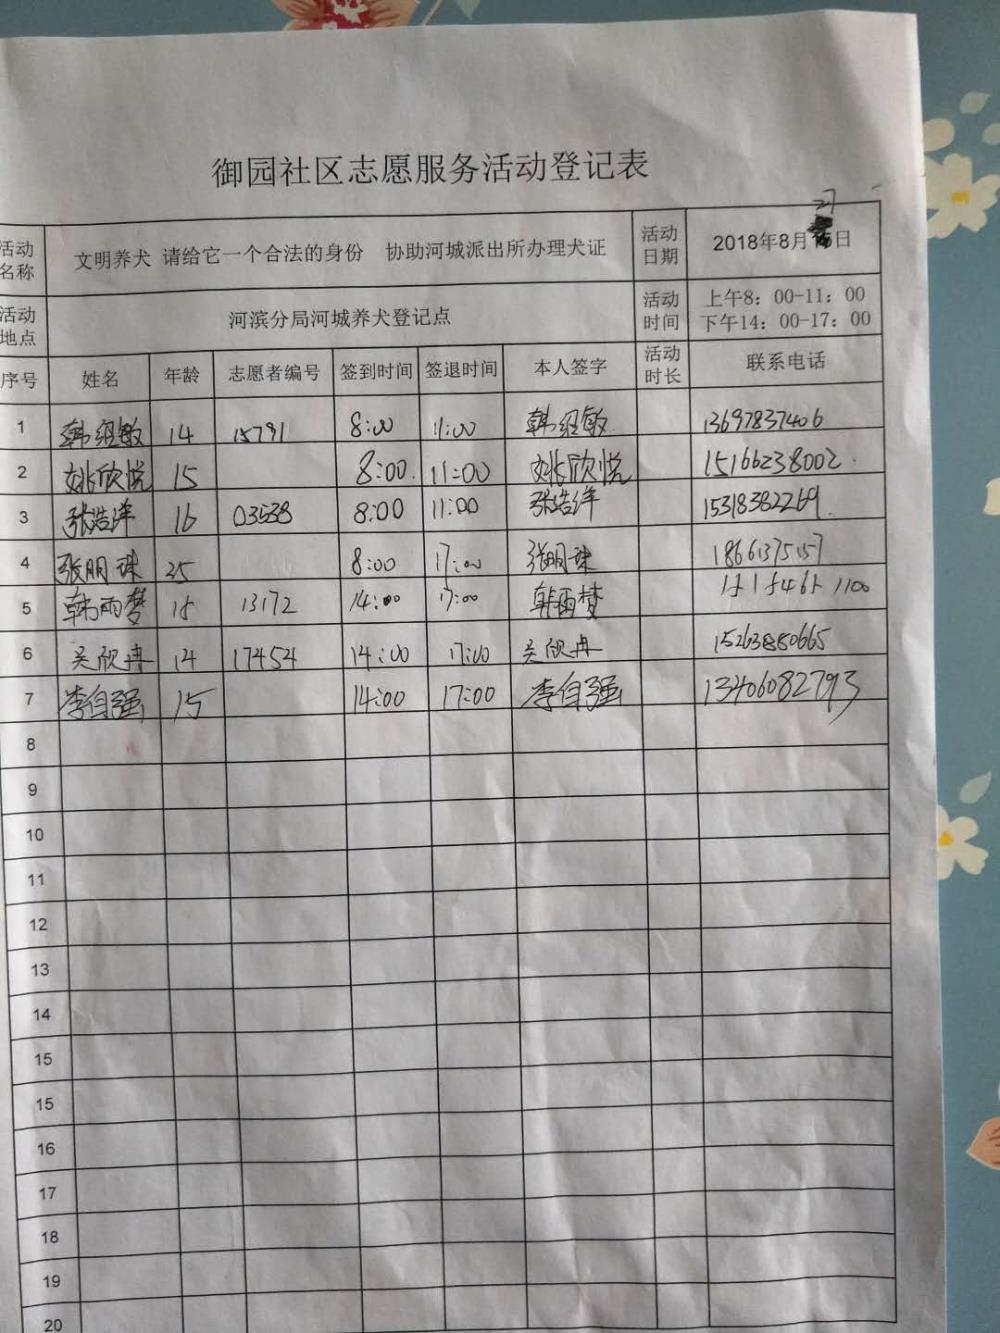 御园社区志愿服务活动登记表
活动名称 文明养犬 请给它一个合法的身份 协助河城派出所办理犬证 活动日期 2018年8月27日
活动地点 河滨分局河城养犬登记点 活动时间 上午8：00-11：00 下午14：00-17：00
序号 姓名 年龄 志愿者编号 签到时间 签退时间 本人签字 活动时长 联系电话
1 韩绍敏 14 15791 8:00 11:00 韩绍敏 13697837406
2 姚欣悦 15 8:00 11:00 姚欣悦 15166238002
3 张浩洋 16 03538 8:00 11:00 张浩洋 15318382269
4 张明珠 25 8:00 17:00 张明珠 18661375157
5 韩雨梦 15 13172 14:00 17:00 韩雨梦 15154651100
6 吴欣冉 14 17454 14:00 17:00 吴欣冉 15263880665
7 李自强 15 14:00 17:00 李自强 13406082793
8
9
10
11
12
13
14
15
15
16
17
18
19
20